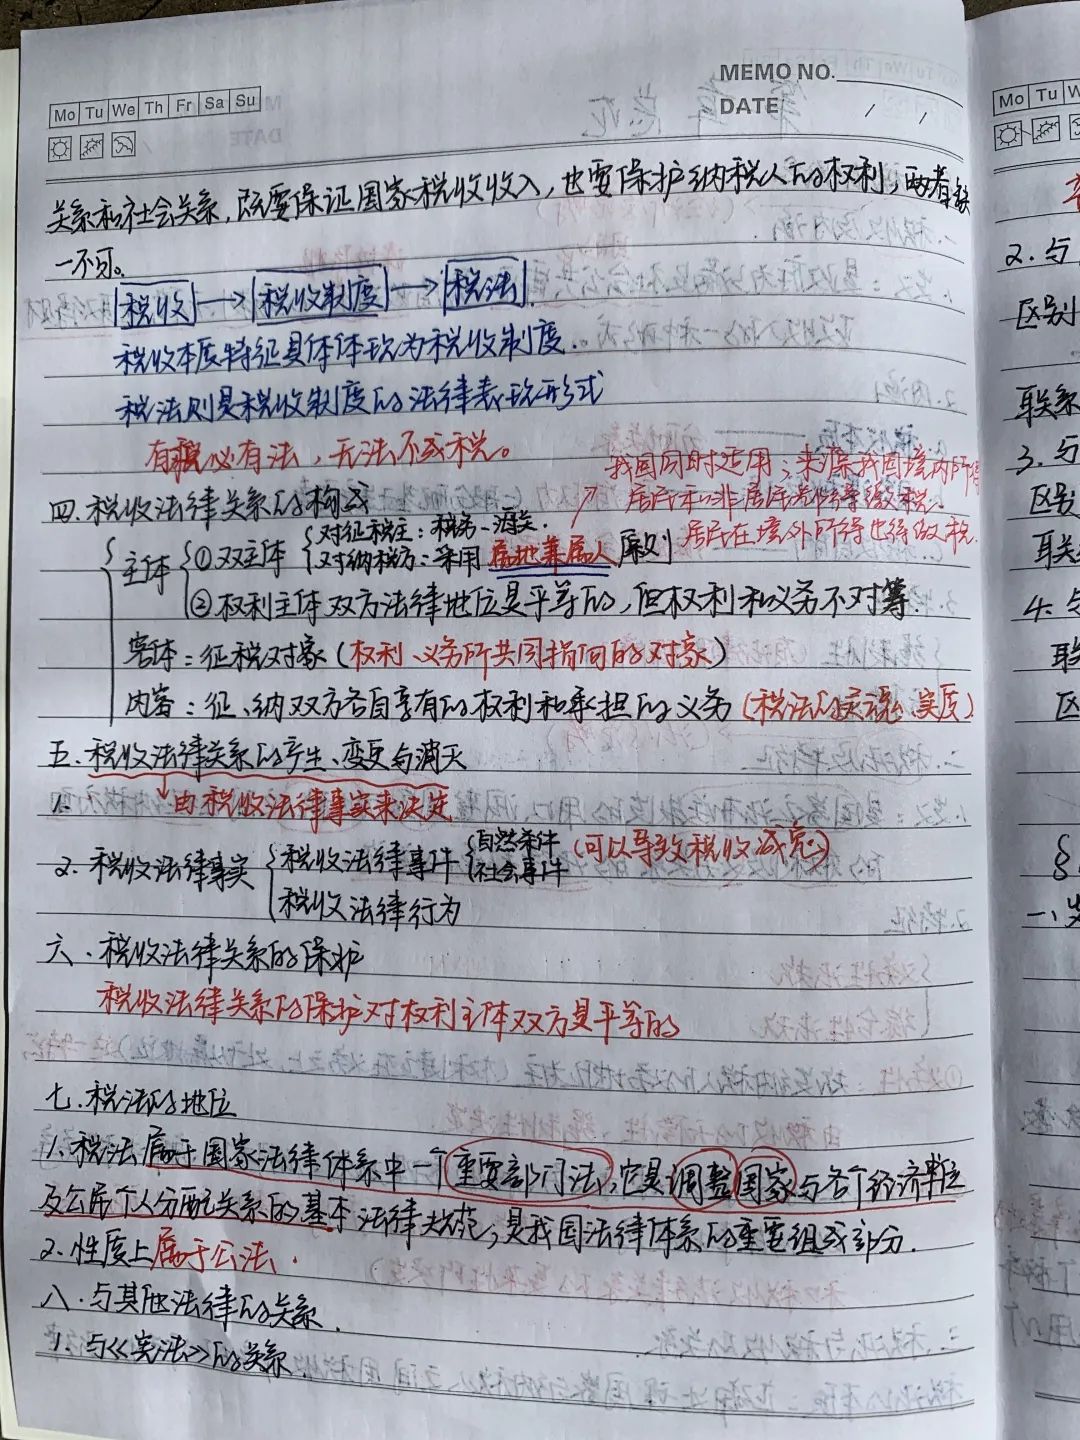 MEMO NO.
DATE / /
Mo Tu We Th Fr Sa Su
关系和社会关系,既要保证国家税收收入,也要保护纳税人的权利,两者缺
一不可。
税收→税收制度→税法.
税收本质特征具体体现为税收制度.
税法则是税收制度的法律表现形式
有税必有法,无法不成税。
我国同时适用;来源我国境内所得
居民和非居民都得缴税.
居民在境外所得也得缴税.
四.税收法律关系的构成
主体 ①双主体 对征税主:税务、海关.
对纳税方:采用属地兼属人原则
②权利主体双方法律地位是平等的,但权利和义务不对等.
客体:征税对象(权利、义务所共同指向的对象)
内容:征、纳双方各自享有的权利和承担的义务(税法的灵魂、实质)
五.税收法律关系的产生、变更与消灭
1. 由税收法律事实来决定
2.税收法律事实 税收法律事件 自然条件 社会事件 (可以导致税收减免)
税收法律行为
六、税收法律关系的保护
税收法律关系的保护对权利主体双方是平等的
七.税法的地位
1.税法属于国家法律体系中一个重要部门法,它是调整国家与各个经济单位
及公民个人分配关系的基本法律规范,是我国法律体系的重要组成部分.
2.性质上属于公法.
八.与其他法律的关系.
1.与《宪法》的关系.
Mo Tu W
2.与
区别
联系
3.与
区别
联系
4.与
联
区
一、